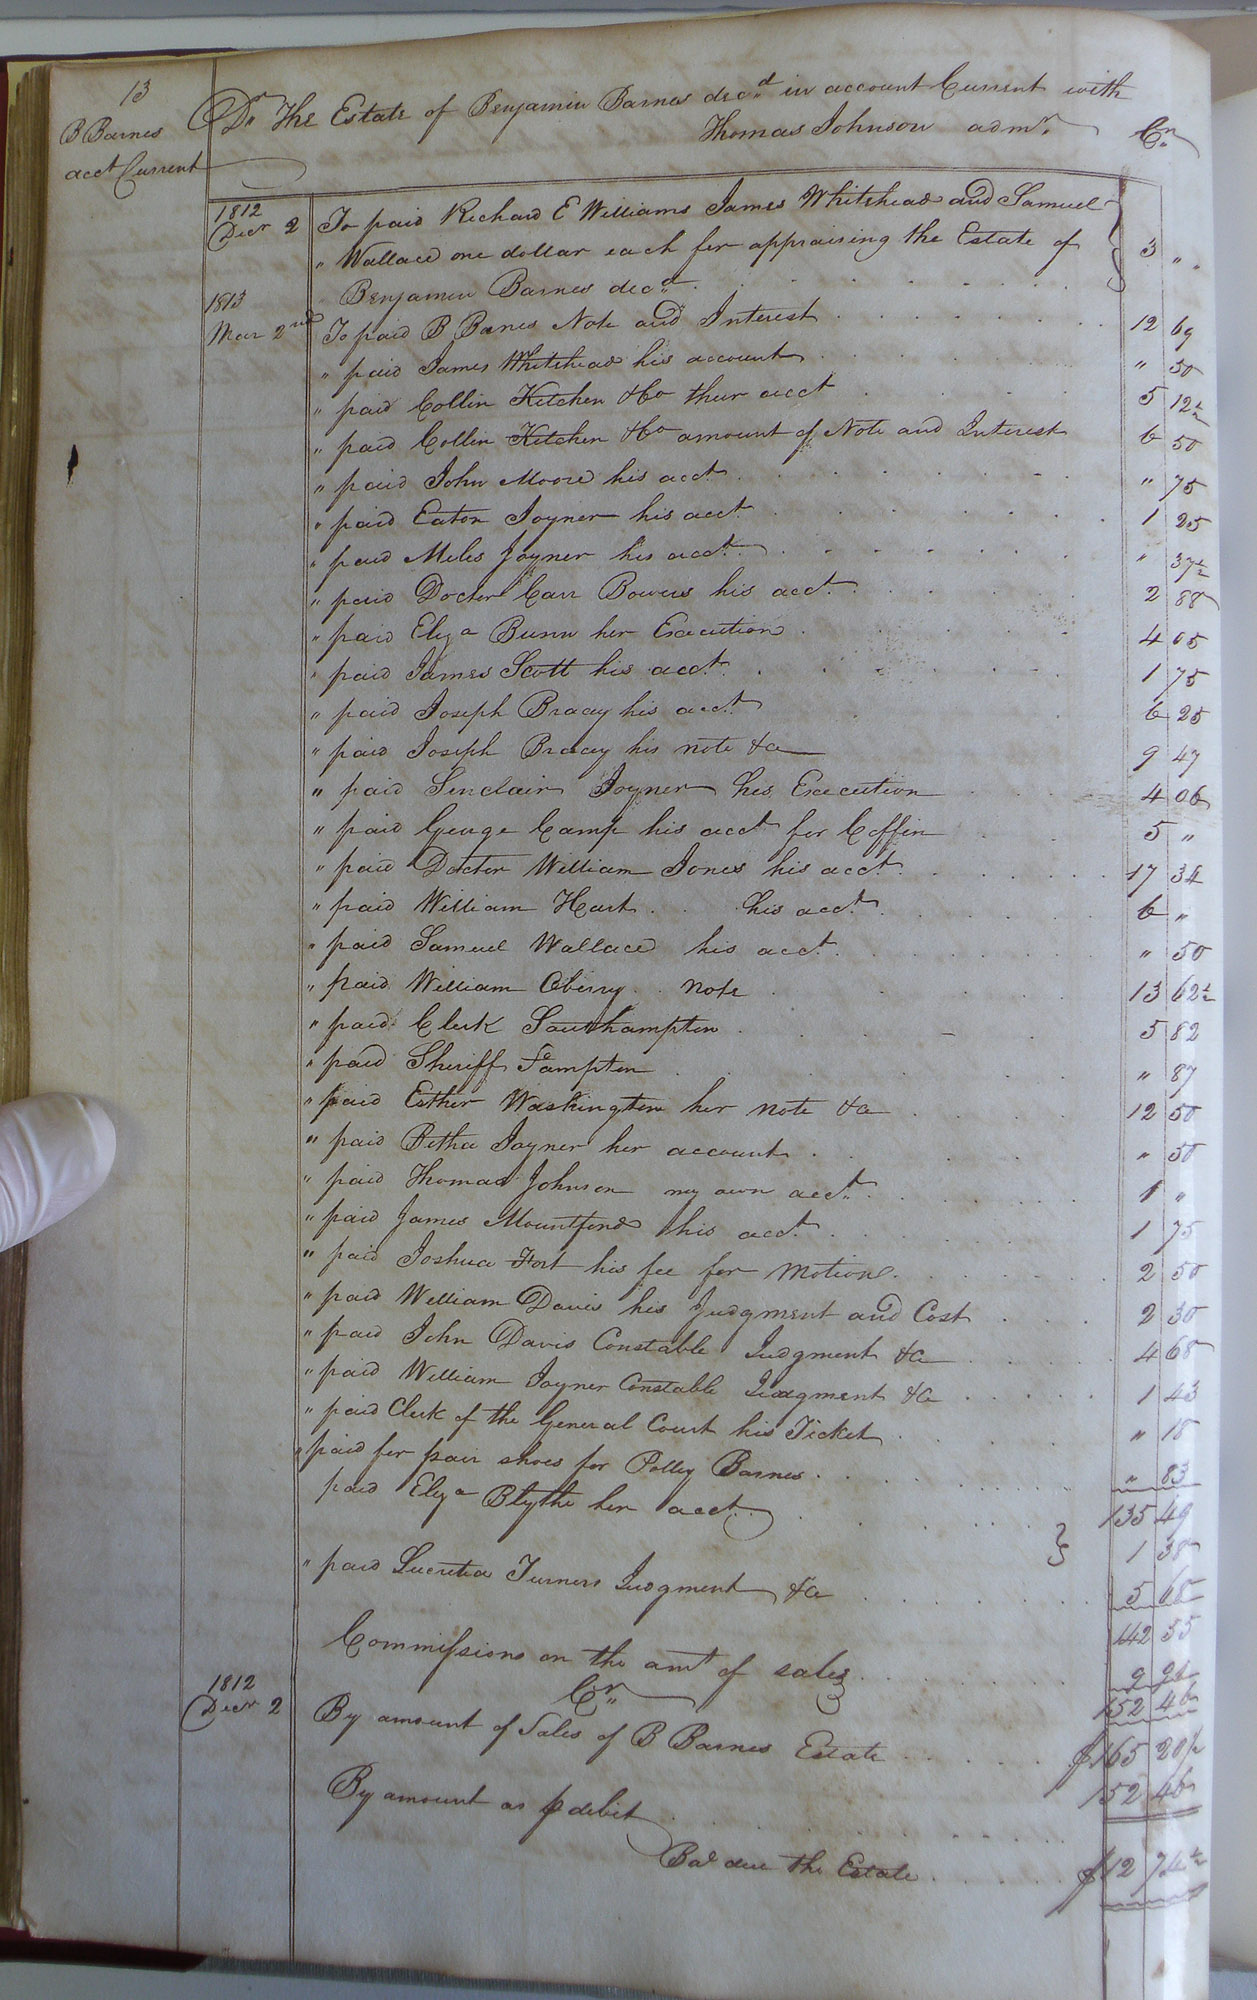 13
B Barnes
acct Current
Dr The Estate of Benjamin Barnes decd in account Current with
Thomas Johnson admr. Cr
1812
Decr 2 To paid Richard E Williams James Whitehead and Samuel
" Wallace one dollar each for appraising the Estate of 3 " "
Benjamin Barnes decd
1813
Mar 2nd To paid B Barnes Note and Interest 12 69
" paid James Whitehead his account " 50
" paid Collin Kitchen & Co their acct 5 12½
" paid Collin Kitchen & Co amount of Note and Interest 6 50
" paid John Moore his acct " 75
" paid Eaton Joyner his acct 1 25
" paid Miles Joyner his acct " 37½
" paid Doctor Carr Bowers his acct. 2 88
" paid Eliza Bunn her Execution 4 05
" paid James Scott his acct. 1 75
" paid Joseph Bracey his acct. 6 25
" paid Joseph Bracey his note &c 9 47
" paid Sinclair Joyner his Execution 4 06
" paid George Camp his acct for Coffin 5 "
" paid Doctor William Jones his acct. 17 34
" paid William Hart his acct. 6 "
" paid Samuel Wallace his acct. " 50
" paid William Oberry note 13 62½
" paid Clerk Southampton 5 82
" paid Sheriff Sampton " 87
" paid Esther Washington her note &c 12 50
" paid Retha Joyner her account " 50
" paid Thomas Johnson my own acct. 1 "
" paid James Mountford his acct. 1 75
" paid Joshua Fort his fee for Motion 2 50
" paid William Davis his Judgment and Cost 2 30
" paid John Davis Constable Judgment &c 4 68
" paid William Joyner Constable Judgment &c 1 43
" paid Clerk of the General Court his Ticket " 18
" paid for pair shoes for Polley Barnes " 83
135 49
paid Eliza Blythe her acct. 1 38
" paid Lucretia Turners Judgment &c 5 68
142 55
Commissions on the amt of sales 9 91
152 46
Cr
1812
Decr 2 By amount of Sales of B Barnes Estate $165 20½
By amount as p debit 152 46
Bal due the Estate $12 74½